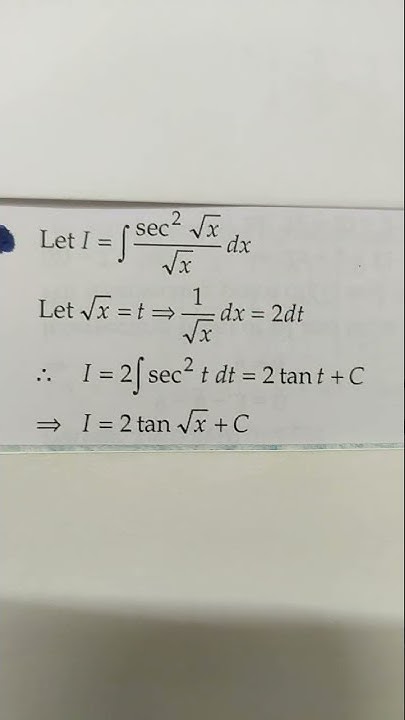 Let I = ∫ sec² √x / √x dx
Let √x = t ⇒ 1/√x dx = 2dt
∴ I = 2∫ sec² t dt = 2 tan t + C
⇒ I = 2 tan √x + C